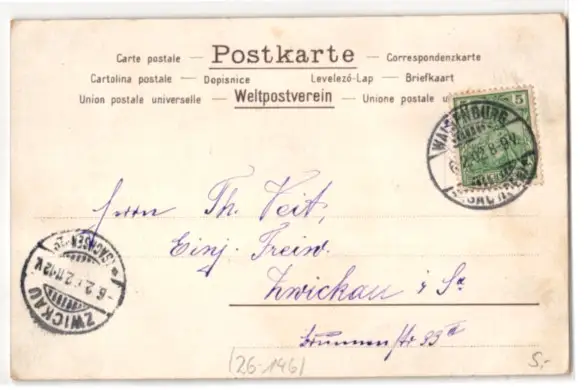 Carte postale — Postkarte — Correspondenzkarte
Cartolina postale — Dopisnice Levelező-Lap — Briefkaart
Union postale universelle — Weltpostverein — Unione postale u
5
WALDENBURG
2.02.8-9V.
(SACHSEN)
Herrn Th. Veit,
Einj. Freiw.
Zwickau i Sa
Brunnenstr 23
(SACHSEN)
6.2. 11-12V.
ZWICKAU
(26-146)
5,-